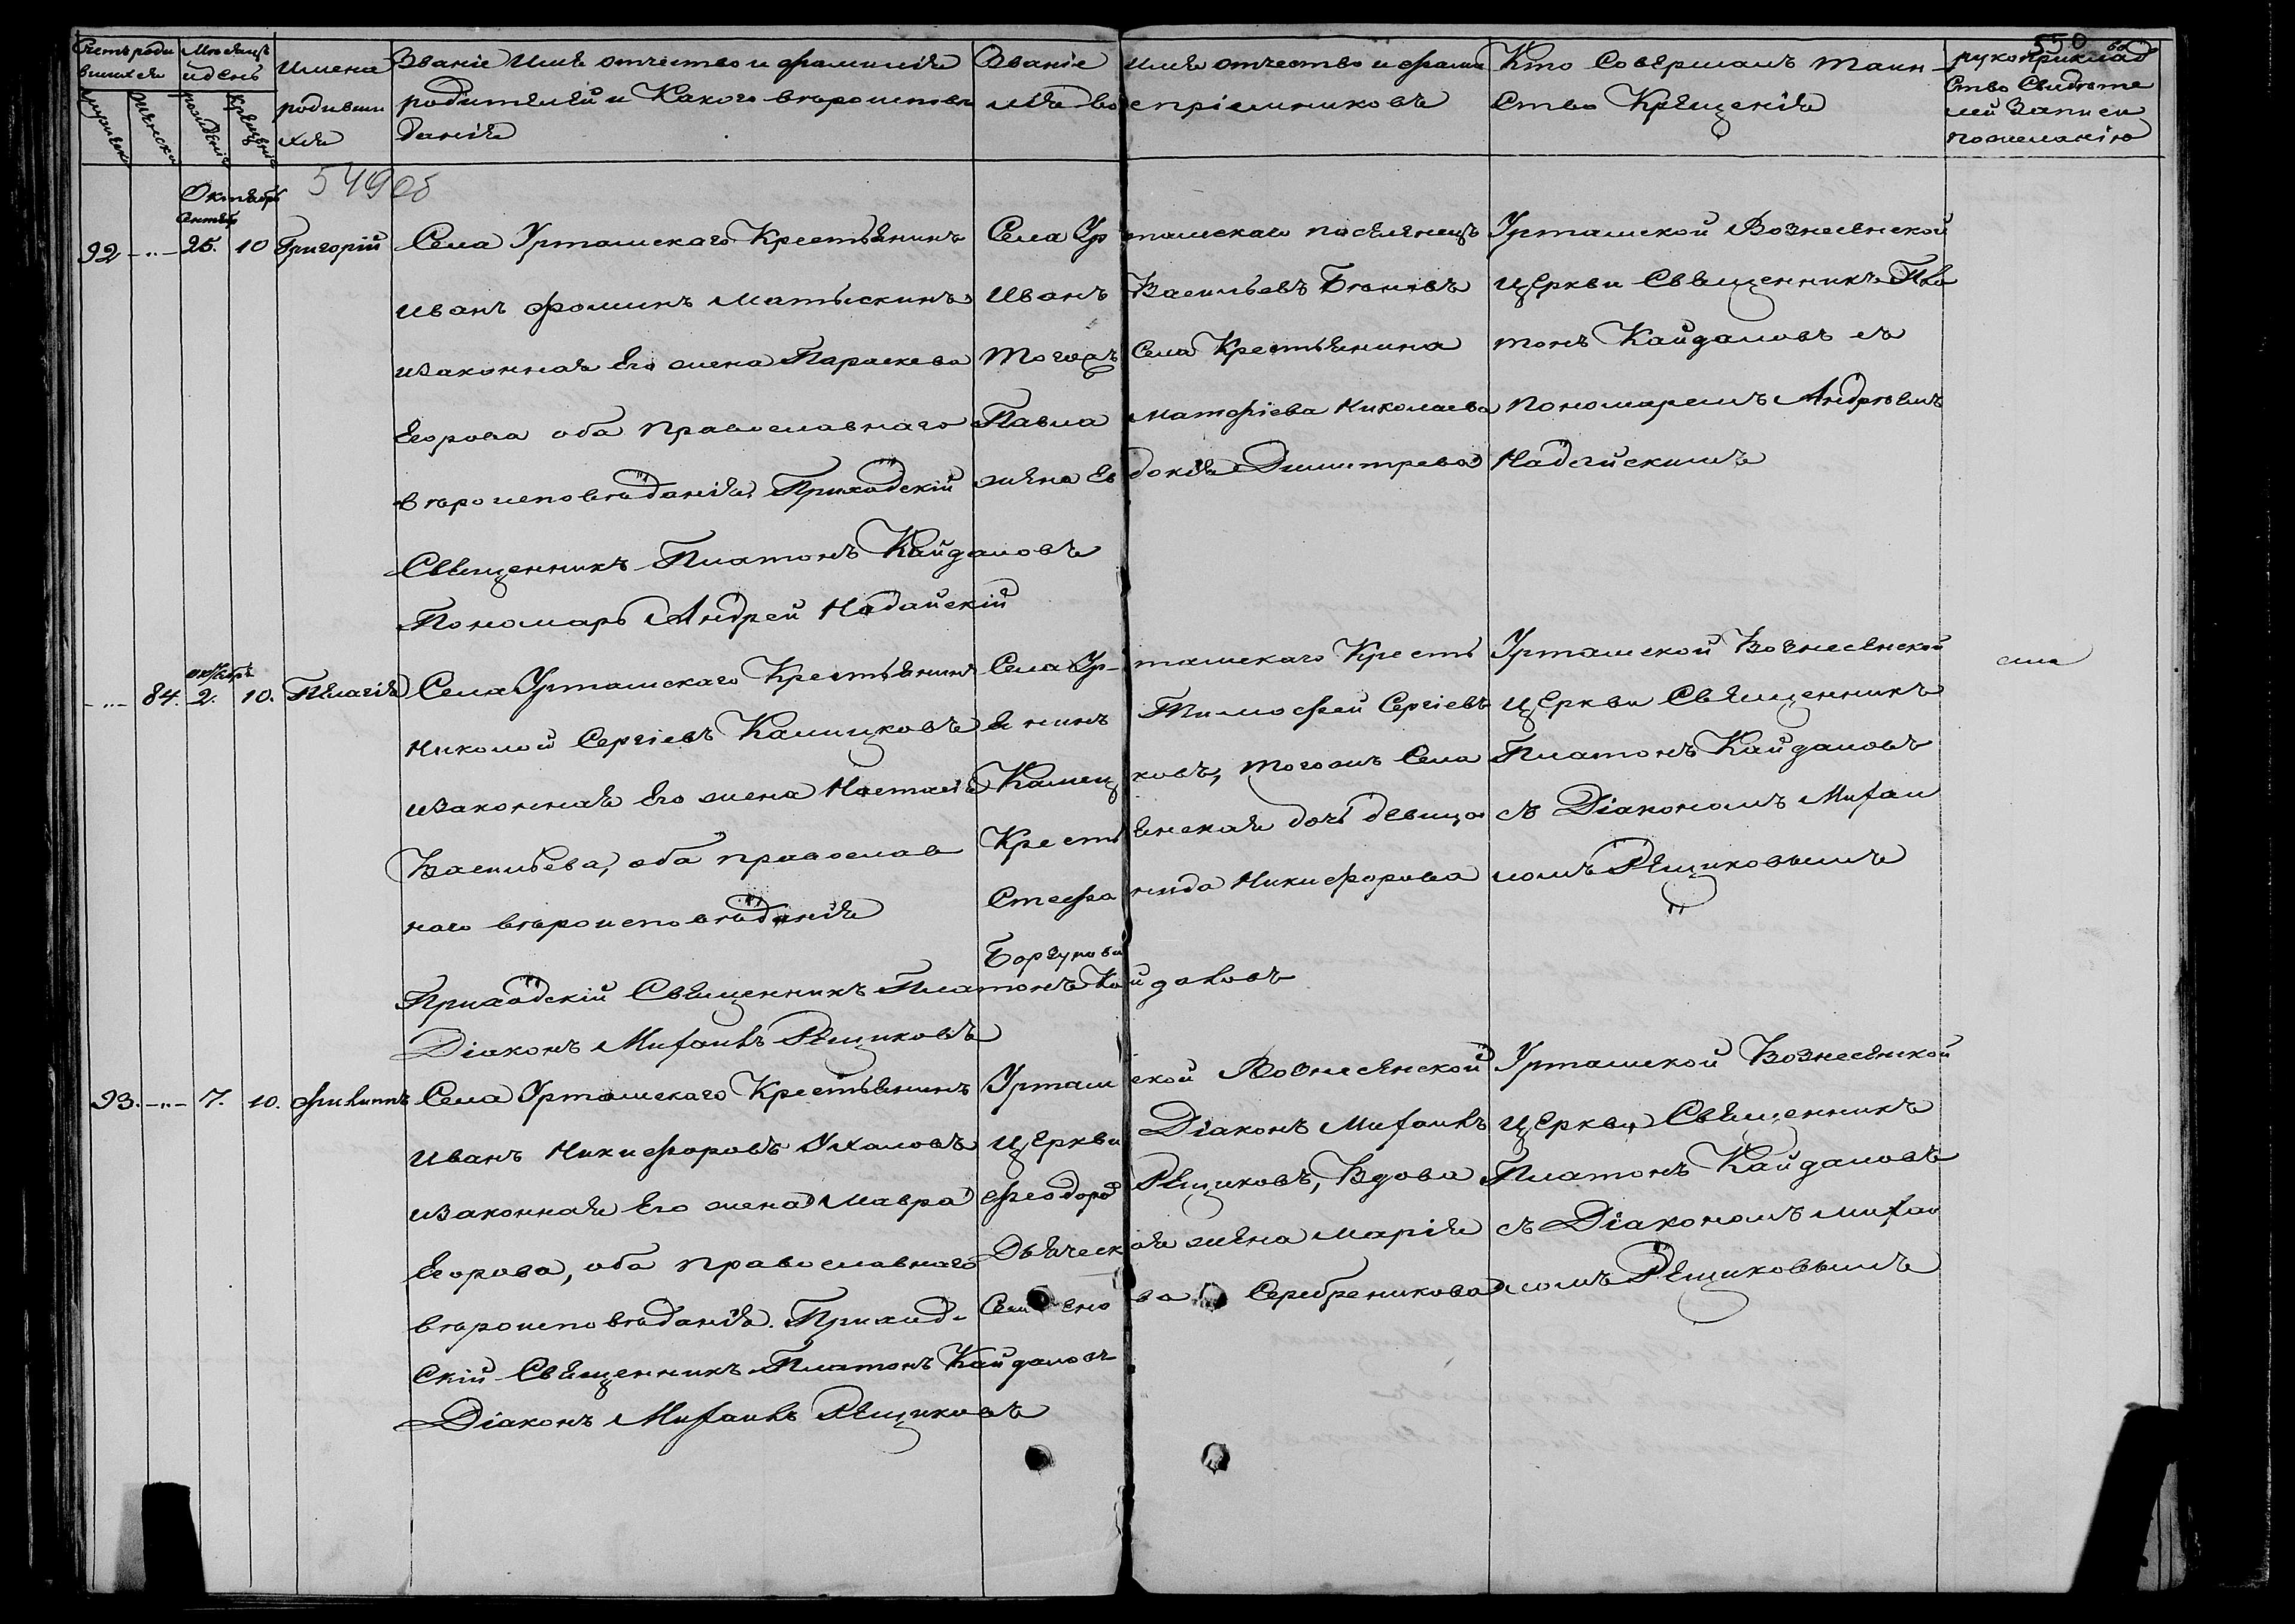 550
Счетъ роди
вшихся
Мѣсяцъ
и день
Имена
родивши
хся
мужеска
женска
рожденія
крещенія
Званіе Имя отчество и фамилія
родителей и Какого вѣроиспове
данія
Званіе имя отчество и фами
лія воспріемниковъ
Кто Совершалъ Таин-
Ство Крещенія
рукоприклад
Ство Свидѣте
лей Записи
пожеланію
549об
Октябрь
Сентяб
92 -"- 25. 10 Григорій
Села Урташскаго Крестьянинъ
Иванъ Фоминъ Матыскинъ
изаконная Его жена Параскева
Егорова оба православнаго
вѣроисповѣданія. Приходскій
Священникъ Платонъ Кайдаловъ
Пономарь Андрей Надайскій
Села Урташскаго поселенецъ
Иванъ Васильевъ
Тогожъ Села Крестьянина
Павла Матфіева Николаева
жена Евдокія Димитрева
Урташской Вознесенской
Церкви Священникъ Пла
тонъ Кайдаловъ съ
пономаремъ Андреемъ
Надайскимъ
октябрь
-"- 84. 2. 10. Пелагія
Села Урташскаго Крестьянинъ
Николай Сергіевъ Камщиковъ
изаконная Его жена Настасія
Васильева, оба православ
наго вѣроисповѣданія
Приходскій Священникъ Платонъ Кайдаловъ
Діаконъ Михаилъ Рещиковъ
Села Урташскаго Кресть
янинъ Тимофей Сергіевъ
Камщиковъ, тогожъ Села
Крестьянская дочь девица
Стефанида Никифорова
Боргунова
Урташской Вознесенской
Церкви Священникъ
Платонъ Кайдаловъ
съ Діакономъ Михаи
ломъ Рещиковымъ
93. -"- 7. 10. Филиппъ
Села Урташскаго Крестьянинъ
Иванъ Никифоровъ Ужаловъ
изаконная Его жена Мавра
Егорова, оба православнаго
вѣроисповѣданія. Приход-
Скій Священникъ Платонъ Кайдаловъ
Діаконъ Михаилъ Рещиковъ
Урташской Вознесенской
Церкви Діаконъ Михаилъ
Феодоро Рещиковъ, Вдова
Дьяческая жена Марія
Семенова Серебреникова
Урташской Вознесенской
Церкви Священникъ
Платонъ Кайдаловъ
съ Діакономъ Михаи
ломъ Рещиковымъ